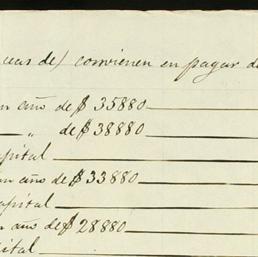 de) convienen en pagar d
n año de $ 35880
„ de $ 38880
pital
n año de $ 33880
apital
n año de $ 28880
ital